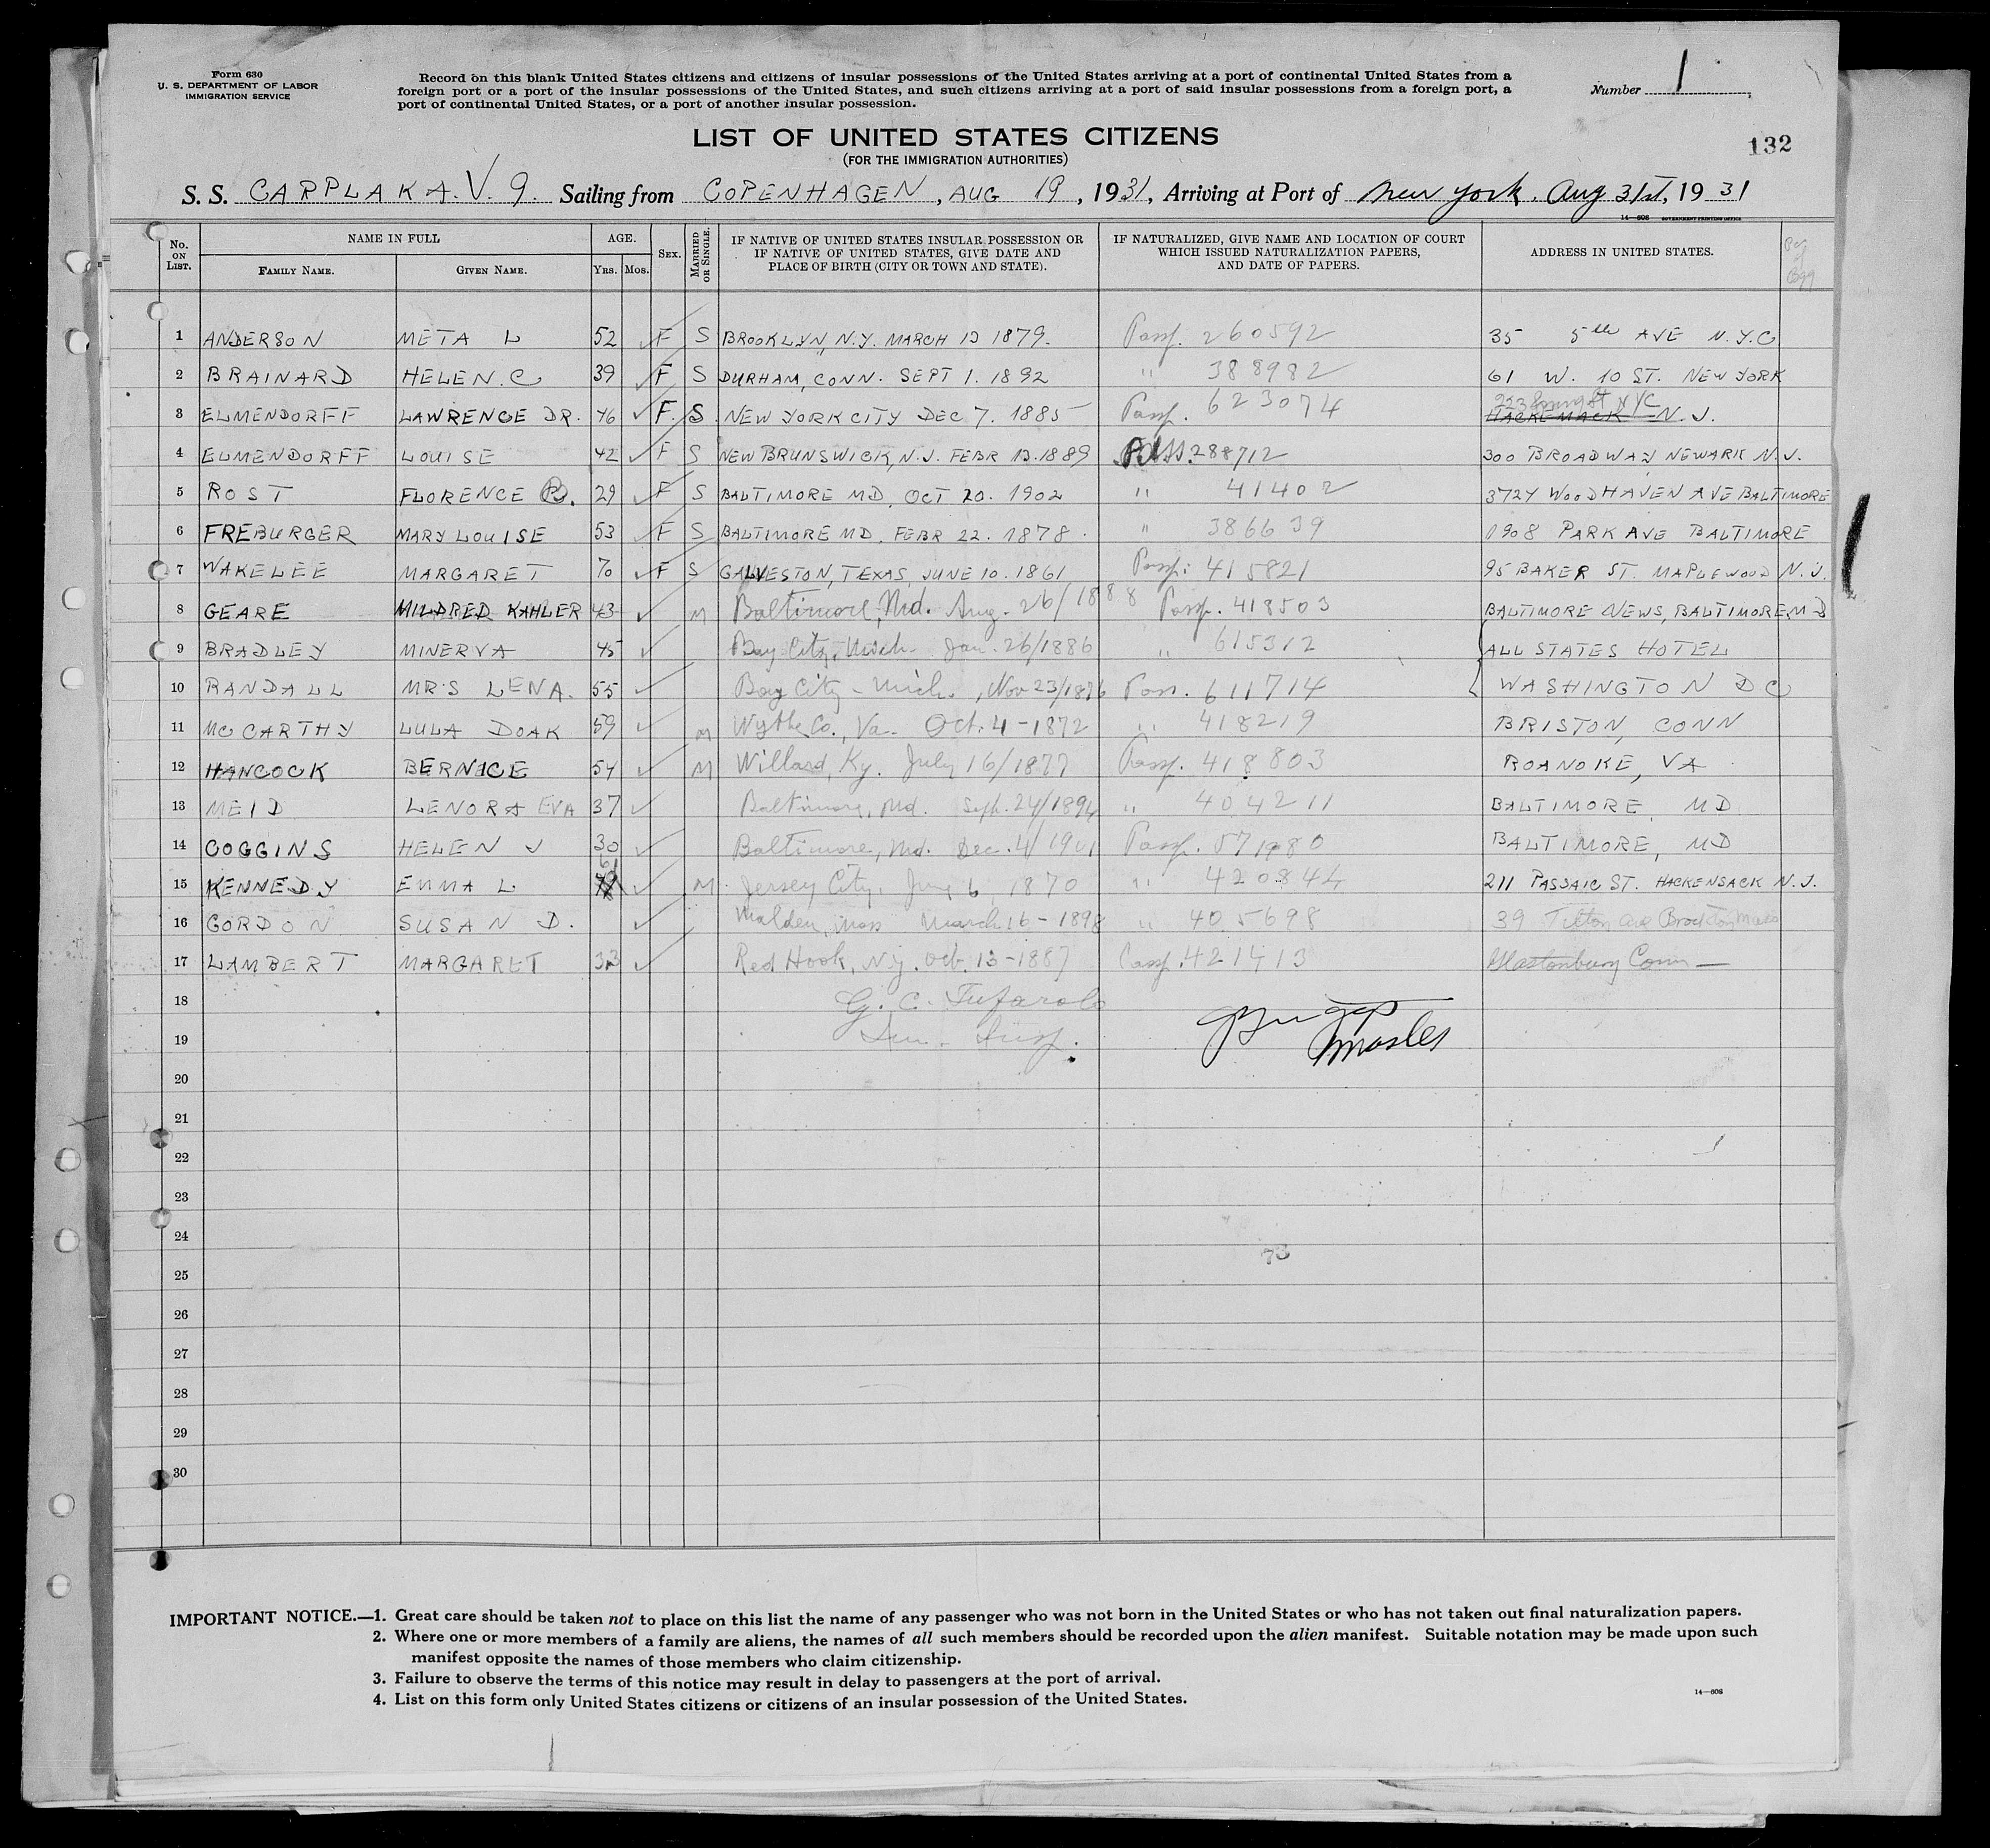 Form 630
U. S. DEPARTMENT OF LABOR
IMMIGRATION SERVICE
Record on this blank United States citizens and citizens of insular possessions of the United States arriving at a port of continental United States from a
foreign port or a port of the insular possessions of the United States, and such citizens arriving at a port of said insular possessions from a foreign port, a
port of continental United States, or a port of another insular possession.
Number 1
LIST OF UNITED STATES CITIZENS
(FOR THE IMMIGRATION AUTHORITIES)
132
S. S. CARPLAKA. V. 9. Sailing from COPENHAGEN, AUG 19, 1931, Arriving at Port of New York. Aug 31st, 1931
14—608 GOVERNMENT PRINTING OFFICE
No. ON LIST. NAME IN FULL FAMILY NAME. GIVEN NAME. AGE. YRS. MOS. SEX. MARRIED OR SINGLE. IF NATIVE OF UNITED STATES INSULAR POSSESSION OR IF NATIVE OF UNITED STATES, GIVE DATE AND PLACE OF BIRTH (CITY OR TOWN AND STATE). IF NATURALIZED, GIVE NAME AND LOCATION OF COURT WHICH ISSUED NATURALIZATION PAPERS, AND DATE OF PAPERS. ADDRESS IN UNITED STATES.
1 ANDERSON META L 52 F S BROOKLYN, N.Y. MARCH 13 1879. Passp. 260592 35 5th AVE N.Y.C
2 BRAINARD HELEN. C 39 F S DURHAM, CONN. SEPT 1. 1892 " 388982 61 W. 10 ST. NEW YORK
3 ELMENDORFF LAWRENCE DR. 46 F. S. NEW YORK CITY DEC 7. 1885 Passp. 623074 223 St NYC N.J.
4 ELMENDORFF LOUISE 42 F S NEW BRUNSWICK, N.J. FEBR 13.1889 PASS. 288712 300 BROADWAY NEWARK N.J.
5 ROST FLORENCE B. 29 F S BALTIMORE MD, OCT 20. 1902 " 41402 3724 WOODHAVEN AVE BALTIMORE
6 FREBURGER MARY LOUISE 53 F S BALTIMORE MD. FEBR 22. 1878. " 386639 1908 PARK AVE BALTIMORE
7 WAKELEE MARGARET 70 F S GALVESTON, TEXAS, JUNE 10. 1861 Passp: 415821 95 BAKER ST. MAPLEWOOD N.J.
8 GEARE MILDRED KAHLER 43 M Baltimore, Md. Aug. 26/1888 Passp. 418503 BALTIMORE NEWS, BALTIMORE MD
9 BRADLEY MINERVA 45 Bay City, Mich. Jan. 26/1886 " 615312 ALL STATES HOTEL
10 RANDALL MRS LENA. 55 Bay City - Mich., Nov 23/1876 Pass. 611714 WASHINGTON DC
11 McCARTHY LULA DOAK 59 M Wythe Co., Va. Oct. 4-1872 " 418219 BRISTON, CONN
12 HANCOCK BERNICE 54 M Willard, Ky. July 16/1877 Passp. 418803 ROANOKE, VA
13 MEID LENORA EVA 37 Baltimore, Md. Sept. 24/1894 " 404211 BALTIMORE MD
14 GOGGINS HELEN J 30 Baltimore, Md. Dec. 4/1901 Passp. 571980 BALTIMORE, MD
15 KENNEDY EMMA L 61 M Jersey City, June 6, 1870 " 420844 211 PASSAIC ST. HACKENSACK N.J.
16 GORDON SUSAN D. Malden, Mass March 16-1898 " 405698 39 Tilton Ave Brockton Mass
17 LAMBERT MARGARET 33 Red Hook, N.Y. Oct. 13-1887 Passp. 421413 Glastonbury Conn
18 G. C. Tufarolo
19 Imm. Insp.
20
21
22
23
24
73
25
26
27
28
29
30
IMPORTANT NOTICE.—1. Great care should be taken not to place on this list the name of any passenger who was not born in the United States or who has not taken out final naturalization papers.
2. Where one or more members of a family are aliens, the names of all such members should be recorded upon the alien manifest. Suitable notation may be made upon such
manifest opposite the names of those members who claim citizenship.
3. Failure to observe the terms of this notice may result in delay to passengers at the port of arrival.
4. List on this form only United States citizens or citizens of an insular possession of the United States.
14—608